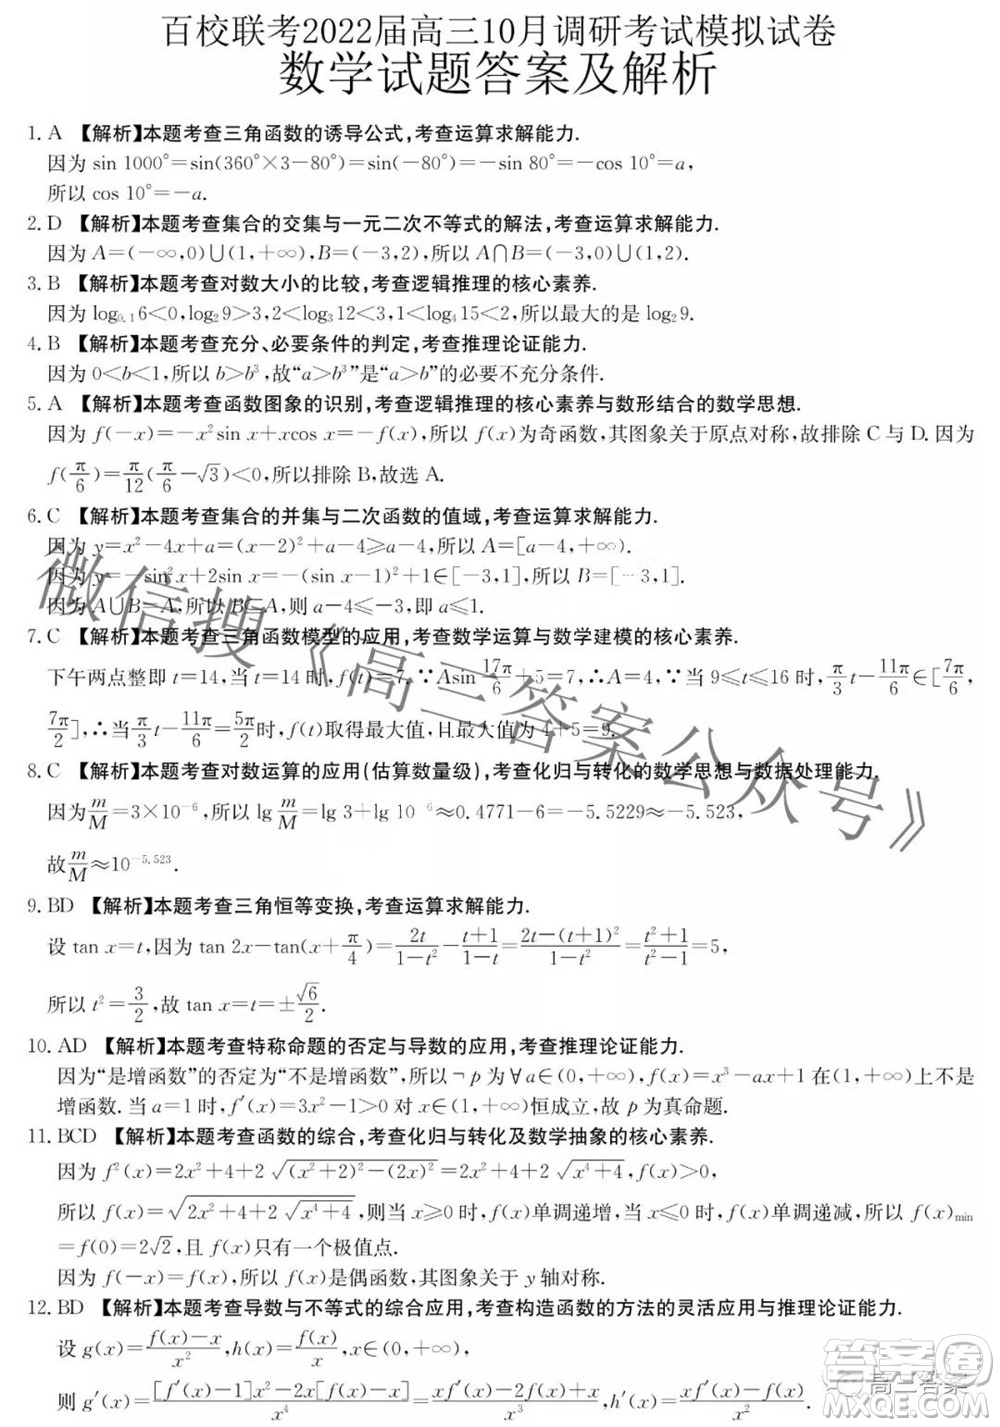 百校联考2022届高三10月调研考试模拟试卷
数学试题答案及解析
1. A 【解析】本题考查三角函数的诱导公式,考查运算求解能力.
因为 sin 1000°=sin(360°×3-80°)=sin(-80°)=-sin 80°=-cos 10°=a,
所以 cos 10°=-a.
2. D 【解析】本题考查集合的交集与一元二次不等式的解法,考查运算求解能力.
因为 A=(-∞,0)∪(1,+∞),B=(-3,2),所以 A∩B=(-3,0)∪(1,2).
3. B 【解析】本题考查对数大小的比较,考查逻辑推理的核心素养.
因为 log₀.₁6<0,log₂9>3,2<log₃12<3,1<log₄15<2,所以最大的是 log₂9.
4. B 【解析】本题考查充分、必要条件的判定,考查推理论证能力.
因为 0<b<1,所以 b>b³,故“a>b³”是“a>b”的必要不充分条件.
5. A 【解析】本题考查函数图象的识别,考查逻辑推理的核心素养与数形结合的数学思想.
因为 f(-x)=-x²sin x+xcos x=-f(x),所以 f(x)为奇函数,其图象关于原点对称,故排除 C 与 D. 因为
f(π/6)=π/12(π/6-√3)<0,所以排除 B,故选 A.
6. C 【解析】本题考查集合的并集与二次函数的值域,考查运算求解能力.
因为 y=x²-4x+a=(x-2)²+a-4≥a-4,所以 A=[a-4,+∞).
因为 y=-sin²x+2sin x=-(sin x-1)²+1∈[-3,1],所以 B=[-3,1].
因为 A∪B=A,所以 B⊆A,则 a-4≤-3,即 a≤1.
7. C 【解析】本题考查三角函数模型的应用,考查数学运算与数学建模的核心素养.
下午两点整即 t=14,当 t=14 时,f(t)=7.∵Asin 17π/6+5=7,∴A=4.∵当 9≤t≤16 时,π/3 t-11π/6∈[7π/6,
7π/2],∴当π/3 t-11π/6=5π/2时,f(t)取得最大值,且最大值为 4+5=9.
8. C 【解析】本题考查对数运算的应用(估算数量级),考查化归与转化的数学思想与数据处理能力.
因为m/M=3×10⁻⁶,所以 lg m/M=lg 3+lg 10⁻⁶≈0.4771-6=-5.5229≈-5.523,
故m/M≈10^(-5.523).
9. BD 【解析】本题考查三角恒等变换,考查运算求解能力.
设 tan x=t,因为 tan 2x-tan(x+π/4)=2t/(1-t²)-(t+1)/(1-t)=(2t-(t+1)²)/(1-t²)=(t²+1)/(t²-1)=5,
所以 t²=3/2,故 tan x=t=±√6/2.
10. AD 【解析】本题考查特称命题的否定与导数的应用,考查推理论证能力.
因为“是增函数”的否定为“不是增函数”,所以¬p 为∀a∈(0,+∞),f(x)=x³-ax+1 在(-1,+∞)上不是
增函数. 当 a=1 时,f′(x)=3x²-1>0 对 x∈(1,+∞)恒成立,故 p 为真命题.
11. BCD 【解析】本题考查函数的综合,考查化归与转化及数学抽象的核心素养.
因为 f²(x)=2x²+4+2√((x²+2)²-(2x)²)=2x²+4+2√(x⁴+4),f(x)>0,
所以 f(x)=√(2x²+4+2√(x⁴+4)),则当 x≥0 时,f(x)单调递增,当 x≤0 时,f(x)单调递减,所以 f(x)min
=f(0)=2√2,且 f(x)只有一个极值点.
因为 f(-x)=f(x),所以 f(x)是偶函数,其图象关于 y 轴对称.
12. BD 【解析】本题考查导数与不等式的综合应用,考查构造函数的方法的灵活应用与推理论证能力.
设 g(x)=(f(x)-x)/x²,h(x)=f(x)/x,x∈(0,+∞),
则 g′(x)=([f′(x)-1]x²-2x[f(x)-x])/x⁴=(xf′(x)-2f(x)+x)/x³,h′(x)=(xf′(x)-f(x))/x².
微信搜《高三答案公众号》
答案圈
高三答案